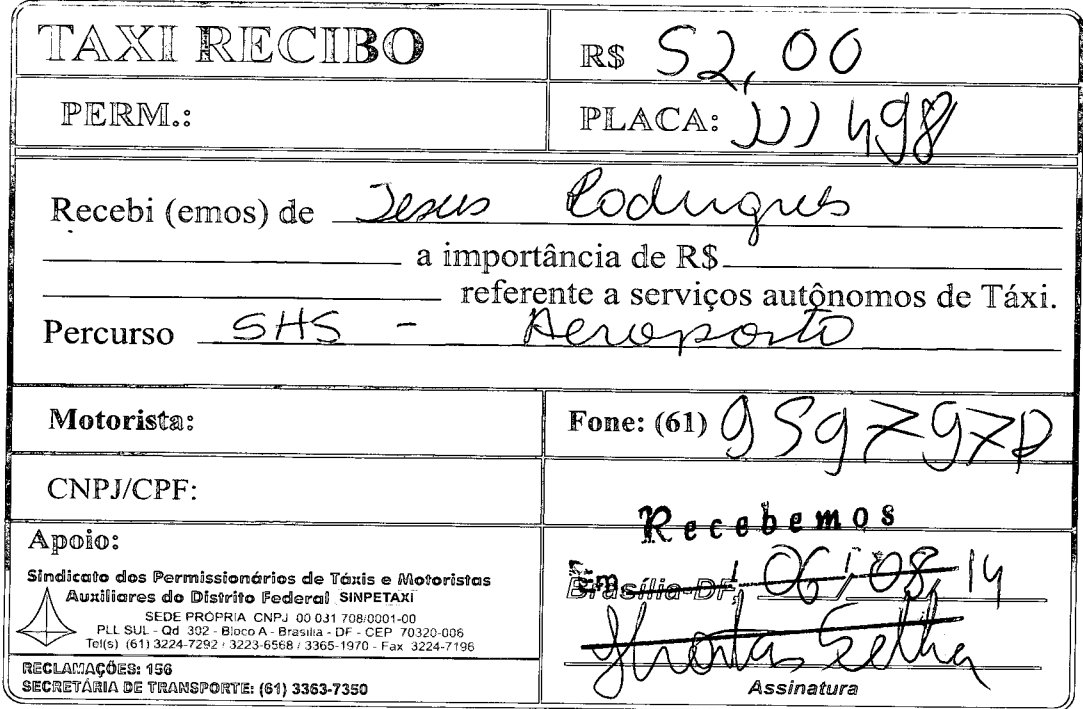 TAXI RECIBO
R$ 52,00
PERM.:
PLACA: JJJ 498
Recebi (emos) de Jesus Rodrigues
a importância de R$
referente a serviços autônomos de Táxi.
Percurso SHS - Aeroporto
Motorista:
Fone: (61)
CNPJ/CPF:
Recebemos
Apoio:
Em
Brasília-DF, 06/08/14
Sindicato dos Permissionários de Táxis e Motoristas
Auxiliares do Distrito Federal SINPETAXI
SEDE PRÓPRIA CNPJ 00 031 708/0001-00
PLL SUL - Qd 302 - Bloco A - Brasília - DF - CEP 70320-006
Tel(s) (61) 3224-7292 / 3223-6568 / 3365-1970 - Fax 3224-7196
Assinatura
RECLAMAÇÕES: 156
SECRETÁRIA DE TRANSPORTE: (61) 3363-7350